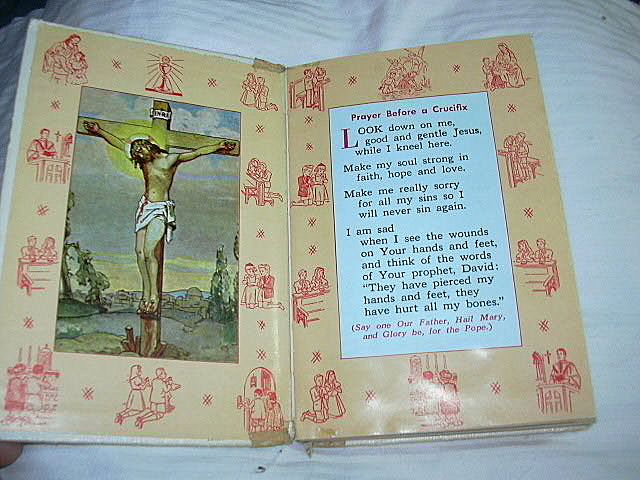 INRI
Prayer Before a Crucifix
LOOK down on me,
good and gentle Jesus,
while I kneel here.
Make my soul strong in
faith, hope and love.
Make me really sorry
for all my sins so I
will never sin again.
I am sad
when I see the wounds
on Your hands and feet,
and think of the words
of Your prophet, David:
"They have pierced my
hands and feet, they
have hurt all my bones."
(Say one Our Father, Hail Mary,
and Glory be, for the Pope.)